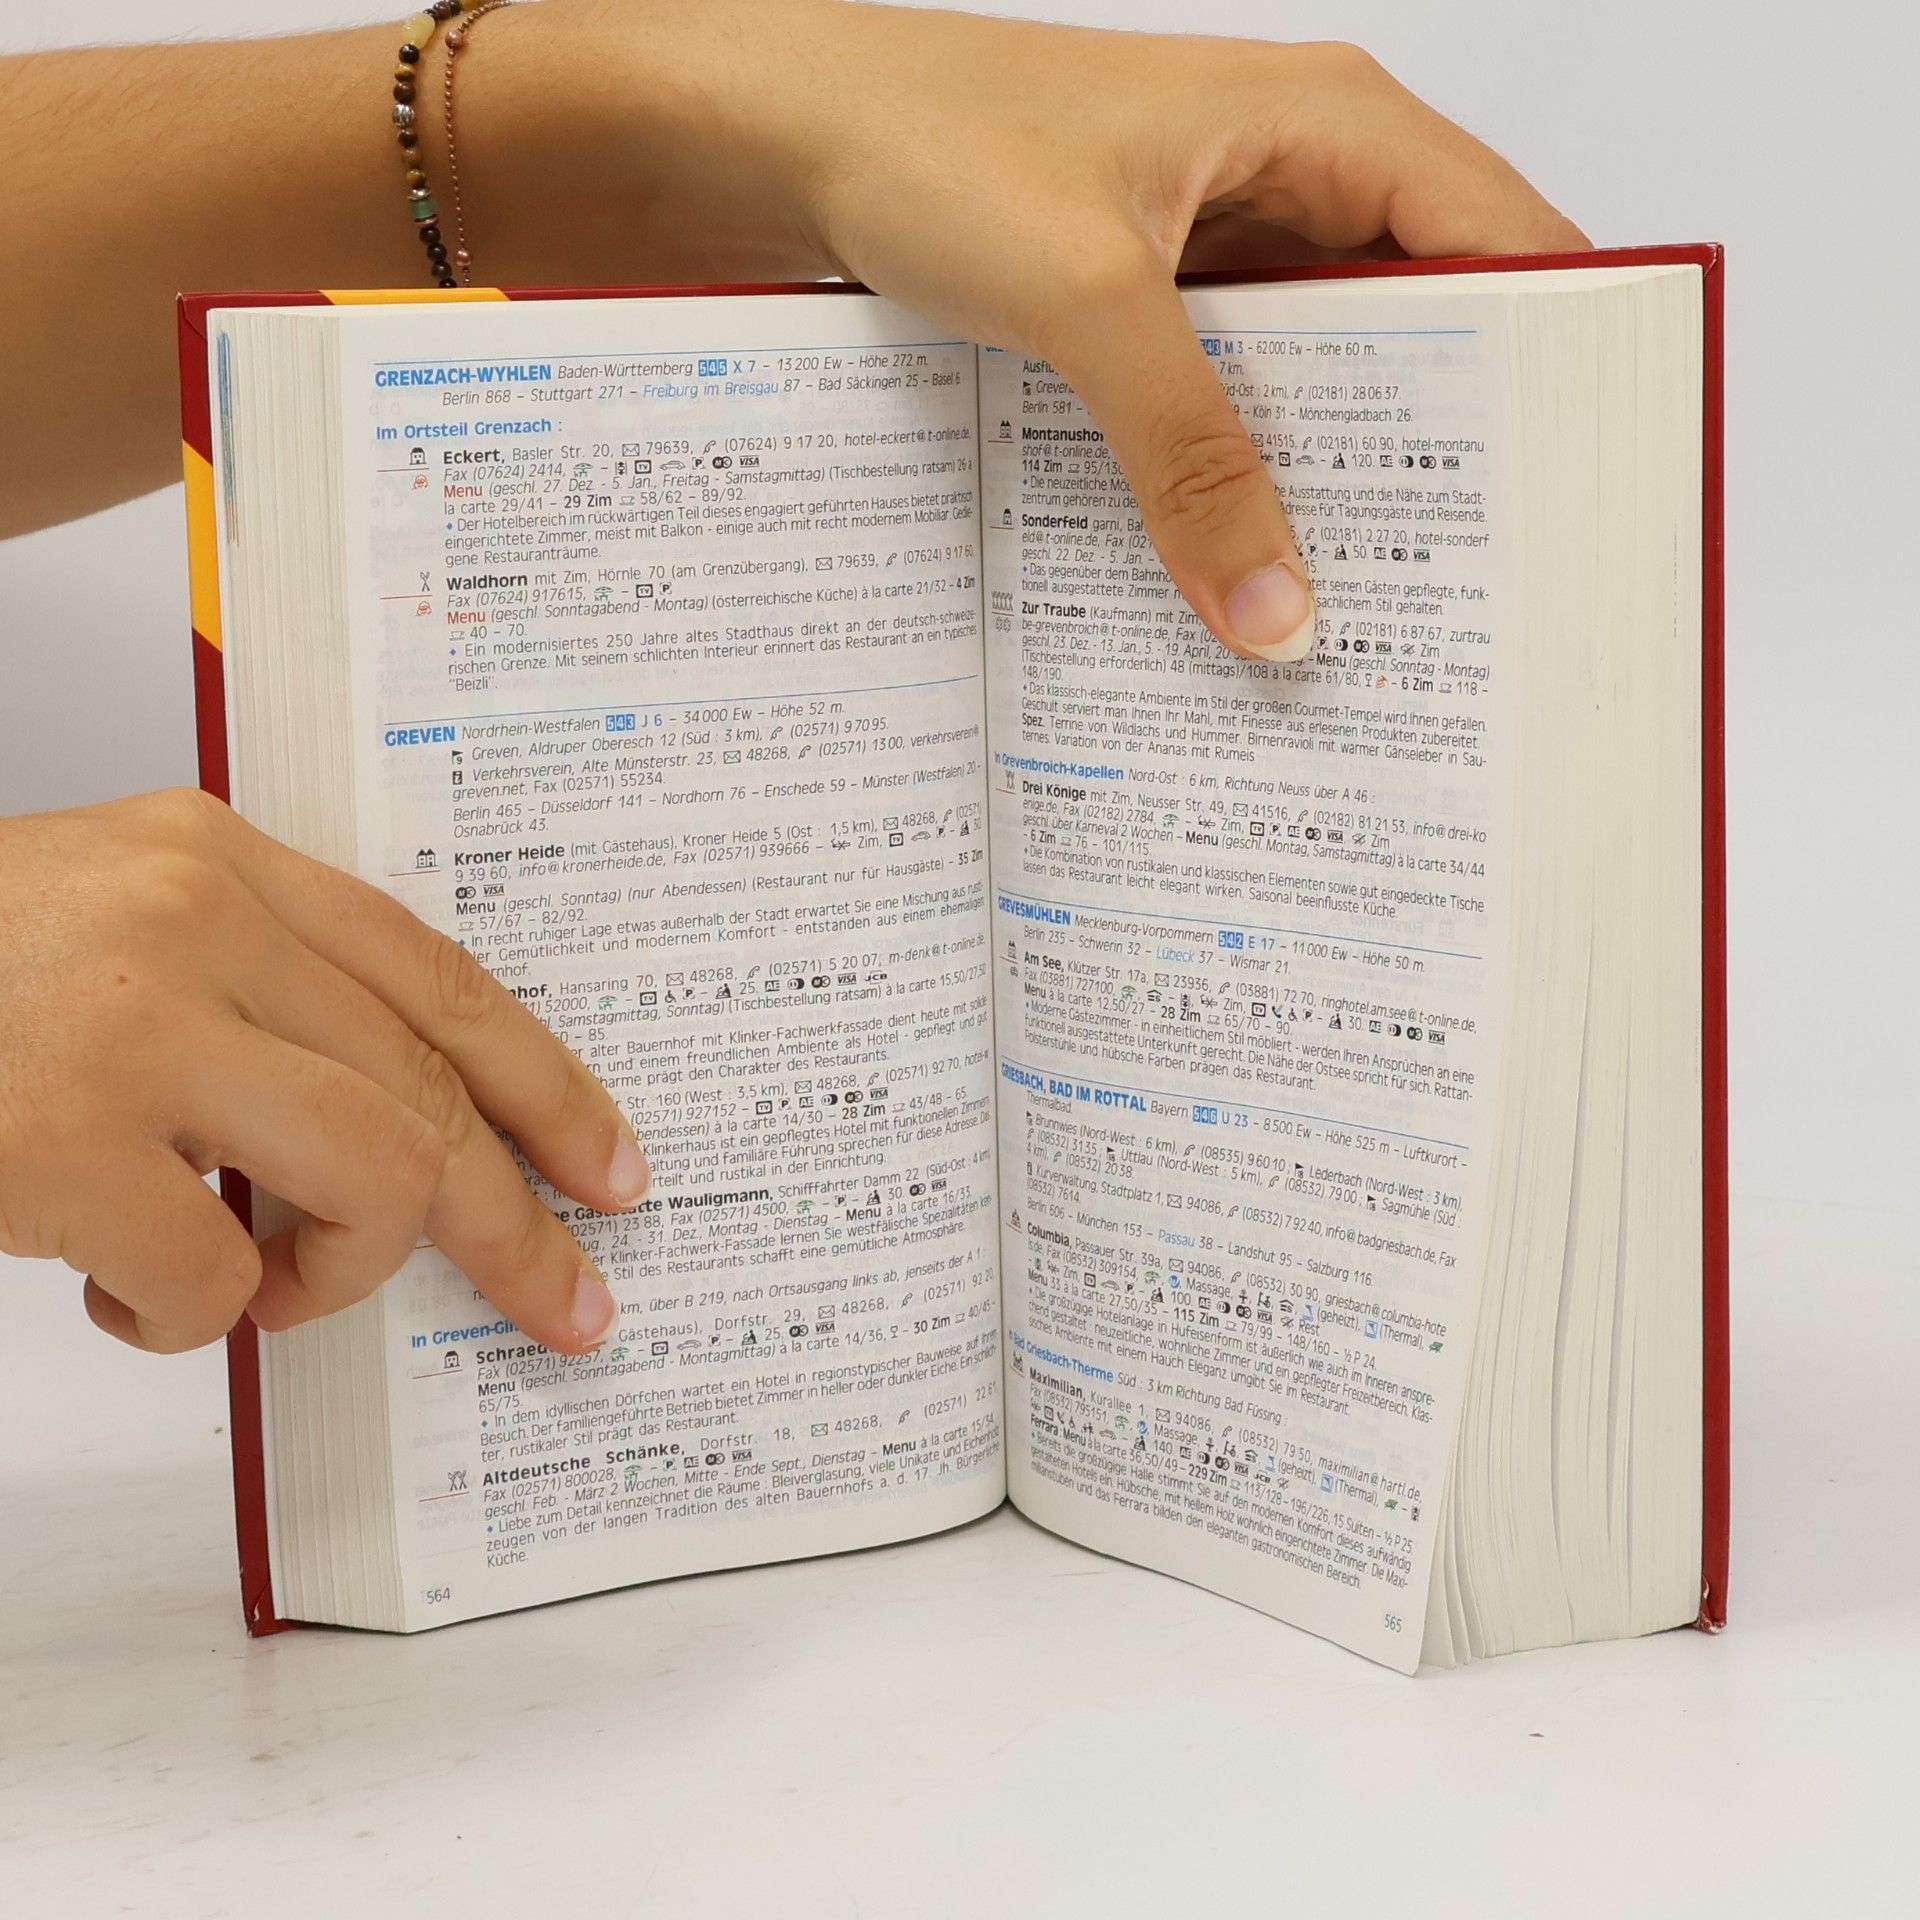 GRENZACH-WYHLEN Baden-Württemberg 545 X 7 – 13 200 Ew – Höhe 272 m.
Berlin 868 – Stuttgart 271 – Freiburg im Breisgau 87 – Bad Säckingen 25 – Basel 6.
Im Ortsteil Grenzach :
Eckert, Basler Str. 20, ✉ 79639, ✆ (07624) 9 17 20, hotel-eckert@t-online.de,
Fax (07624) 2414, – TV P VISA
Menu (geschl. 27. Dez. - 5. Jan., Freitag - Samstagmittag) (Tischbestellung ratsam) 26 à
la carte 29/41 – 29 Zim 58/62 – 89/92.
• Der Hotelbereich im rückwärtigen Teil dieses engagiert geführten Hauses bietet praktisch
eingerichtete Zimmer, meist mit Balkon - einige auch mit recht modernem Mobiliar. Gedie-
gene Restauranträume.
Waldhorn mit Zim, Hörnle 70 (am Grenzübergang), ✉ 79639, ✆ (07624) 9 17 60,
Fax (07624) 917615, – TV P
Menu (geschl. Sonntagabend - Montag) (österreichische Küche) à la carte 21/32 – 4 Zim
40 – 70.
• Ein modernisiertes 250 Jahre altes Stadthaus direkt an der deutsch-schweize-
rischen Grenze. Mit seinem schlichten Interieur erinnert das Restaurant an ein typisches
"Beizli".
GREVEN Nordrhein-Westfalen 543 J 6 – 34 000 Ew – Höhe 52 m.
9 Greven, Aldruper Oberesch 12 (Süd : 3 km), ✆ (02571) 97095.
Verkehrsverein, Alte Münsterstr. 23, ✉ 48268, ✆ (02571) 13 00, verkehrsverein@
greven.net, Fax (02571) 55234.
Berlin 465 – Düsseldorf 141 – Nordhorn 76 – Enschede 59 – Münster (Westfalen) 20 –
Osnabrück 43.
Kroner Heide (mit Gästehaus), Kroner Heide 5 (Ost : 1,5 km), ✉ 48268, ✆ (02571)
9 39 60, info@kronerheide.de, Fax (02571) 939666 – Zim, TV P – 30
VISA
Menu (geschl. Sonntag) (nur Abendessen) (Restaurant nur für Hausgäste) – 35 Zim
57/67 – 82/92.
• In recht ruhiger Lage etwas außerhalb der Stadt erwartet Sie eine Mischung aus rusti-
ler Gemütlichkeit und modernem Komfort - entstanden aus einem ehemaligen
rnhof.
nhof, Hansaring 70, ✉ 48268, ✆ (02571) 5 20 07, m-denk@t-online.de,
52000, – TV P – 25. AE VISA JCB
Samstagmittag, Sonntag) (Tischbestellung ratsam) à la carte 15,50/27,50
– 85.
er alter Bauernhof mit Klinker-Fachwerkfassade dient heute mit solide
rn und einem freundlichen Ambiente als Hotel - gepflegt und gut
harme prägt den Charakter des Restaurants.
r Str. 160 (West : 3,5 km), ✉ 48268, ✆ (02571) 92 70, hotel-w
(02571) 927152 – TV P AE VISA
bendessen) à la carte 14/30 – 28 Zim 43/48 – 65.
Klinkerhaus ist ein gepflegtes Hotel mit funktionellen Zimmern.
altung und familiäre Führung sprechen für diese Adresse. Das
rteilt und rustikal in der Einrichtung.
Wauligmann, Schifffahrter Damm 22 (Süd-Ost : 4 km),
(02571) 23 88, Fax (02571) 4500, – P – 30. VISA
Aug., 24. - 31. Dez., Montag - Dienstag – Menu à la carte 16/33.
er Klinker-Fachwerk-Fassade lernen Sie westfälische Spezialitäten ken-
e Stil des Restaurants schafft eine gemütliche Atmosphäre.
In Greven-Gi km, über B 219, nach Ortsausgang links ab, jenseits der A 1 :
Schraed Gästehaus), Dorfstr. 29, ✉ 48268, ✆ (02571) 92 20,
Fax (02571) 92257, – TV P – 25. VISA
Menu (geschl. Sonntagabend - Montagmittag) à la carte 14/36, – 30 Zim 40/45 –
65/75.
• In dem idyllischen Dörfchen wartet ein Hotel in regionstypischer Bauweise auf Ihren
Besuch. Der familiengeführte Betrieb bietet Zimmer in heller oder dunkler Eiche. Ein schlich-
ter, rustikaler Stil prägt das Restaurant.
Altdeutsche Schänke, Dorfstr. 18, ✉ 48268, ✆ (02571) 22 61,
Fax (02571) 800028, – P AE VISA
geschl. Feb. - März 2 Wochen, Mitte - Ende Sept., Dienstag – Menu à la carte 15/34.
• Liebe zum Detail kennzeichnet die Räume : Bleiverglasung, viele Unikate und Eichenholz
zeugen von der langen Tradition des alten Bauernhofs a. d. 17. Jh. Bürgerliche
Küche.
564
543 M 3 – 62 000 Ew – Höhe 60 m.
7 km.
Süd-Ost : 2 km), ✆ (02181) 28 06 37.
Berlin 581 – – Köln 31 – Mönchengladbach 26.
Montanushof ✉ 41515, ✆ (02181) 60 90, hotel-montanu
shof@t-online.de, TV – 120. AE VISA
114 Zim 95/130
• Die neuzeitliche Ausstattung und die Nähe zum Stadt-
zentrum gehören zu Adresse für Tagungsgäste und Reisende.
Sonderfeld garni, ✆ (02181) 2 27 20, hotel-sonderf
eld@t-online.de, Fax P – 50. AE VISA
geschl. 22. Dez. - 5. Jan. –
• Das gegenüber dem seinen Gästen gepflegte, funk-
tionell ausgestattete Zimmer sachlichem Stil gehalten.
Zur Traube (Kaufmann) mit Zim, ✆ (02181) 6 87 67, zurtrau
be-grevenbroich@t-online.de, Fax P VISA Zim
geschl. 23. Dez. - 13. Jan., 5. - 19. April, – Menu (geschl. Sonntag - Montag)
(Tischbestellung erforderlich) 48 (mittags)/108 à la carte 61/80, – 6 Zim 118 –
148/190.
• Das klassisch-elegante Ambiente im Stil der großen Gourmet-Tempel wird Ihnen gefallen.
Geschult serviert man Ihnen Ihr Mahl, mit Finesse aus erlesenen Produkten zubereitet.
Spez. Terrine von Wildlachs und Hummer. Birnenravioli mit warmer Gänseleber in Sau-
ternes. Variation von der Ananas mit Rumeis
In Grevenbroich-Kapellen Nord-Ost : 6 km, Richtung Neuss über A 46 :
Drei Könige mit Zim, Neusser Str. 49, ✉ 41516, ✆ (02182) 81 21 53, info@drei-ko
enige.de, Fax (02182) 2784, – Zim, TV P AE VISA Zim
geschl. über Karneval 2 Wochen – Menu (geschl. Montag, Samstagmittag) à la carte 34/44
– 6 Zim 76 – 101/115.
• Die Kombination von rustikalen und klassischen Elementen sowie gut eingedeckte Tische
lassen das Restaurant leicht elegant wirken. Saisonal beeinflusste Küche.
GREVESMÜHLEN Mecklenburg-Vorpommern 542 E 17 – 11 000 Ew – Höhe 50 m.
Berlin 235 – Schwerin 32 – Lübeck 37 – Wismar 21.
Am See, Klützer Str. 17a, ✉ 23936, ✆ (03881) 72 70, ringhotel.am.see@t-online.de,
Fax (03881) 727100, – Zim, TV P – 30. AE VISA
Menu à la carte 12,50/27 – 28 Zim 65/70 – 90.
• Moderne Gästezimmer - in einheitlichem Stil möbliert - werden Ihren Ansprüchen an eine
funktionell ausgestattete Unterkunft gerecht. Die Nähe der Ostsee spricht für sich. Rattan-
Polsterstühle und hübsche Farben prägen das Restaurant.
GRIESBACH, BAD IM ROTTAL Bayern 546 U 23 – 8 500 Ew – Höhe 525 m – Luftkurort –
Thermalbad.
Brunnwies (Nord-West : 6 km), ✆ (08535) 96010 ; Lederbach (Nord-West : 3 km),
✆ (08532) 3135 ; Uttlau (Nord-West : 5 km), ✆ (08532) 7900 ; Sagmühle (Süd :
4 km), ✆ (08532) 2038.
Kurverwaltung, Stadtplatz 1, ✉ 94086, ✆ (08532) 7 92 40, info@badgriesbach.de, Fax
(08532) 7614.
Berlin 606 – München 153 – Passau 38 – Landshut 95 – Salzburg 116.
Columbia, Passauer Str. 39a, ✉ 94086, ✆ (08532) 30 90, griesbach@columbia-hote
ls.de, Fax (08532) 309154, Massage, (geheizt), (Thermal),
– Zim, TV P – 100. AE VISA Rest
Menu 33 à la carte 27,50/35 – 115 Zim 79/99 – 148/160 – ½ P 24.
• Die großzügige Hotelanlage in Hufeisenform ist äußerlich wie auch im Inneren anspre-
chend gestaltet : neuzeitliche, wohnliche Zimmer und ein gepflegter Freizeitbereich. Klas-
sisches Ambiente mit einem Hauch Eleganz umgibt Sie im Restaurant.
In Bad Griesbach-Therme Süd : 3 km Richtung Bad Füssing :
Maximilian, Kurallee 1, ✉ 94086, ✆ (08532) 79 50, maximilian@hartl.de,
Fax (08532) 795151, Massage, (geheizt), (Thermal), –
TV – 140. AE VISA JCB
Ferrara : Menu à la carte 36,50/49 – 229 Zim 113/128 – 196/226, 15 Suiten – ½ P 25.
• Bereits die großzügige Halle stimmt Sie auf den modernen Komfort dieses aufwändig
gestalteten Hotels ein. Hübsche, mit hellem Holz wohnlich eingerichtete Zimmer. Die Maxi-
milianstuben und das Ferrara bilden den eleganten gastronomischen Bereich.
565